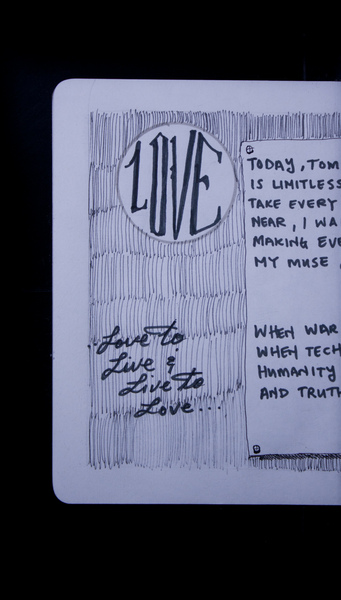 LOVE
Love to
Live &
Live to
Love...
TODAY, TOM
IS LIMITLESS
TAKE EVERY
NEAR, I WA
MAKING EVE
MY MUSE,
WHEN WAR
WHEN TECH
HUMANITY
AND TRUTH